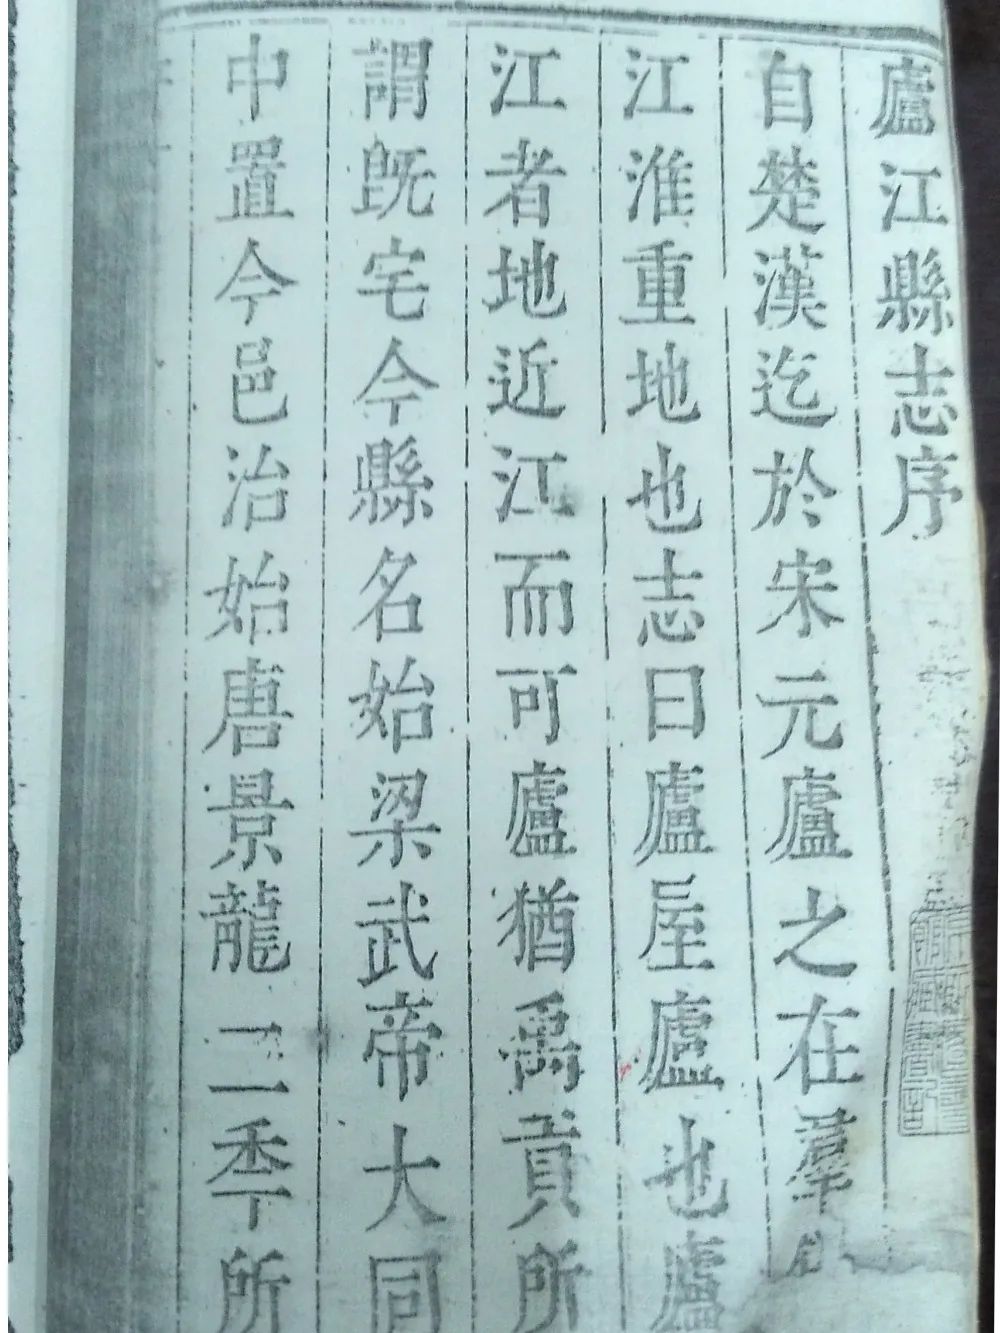 廬江縣志序
自楚漢迄於宋元廬之在羣
江淮重地也志曰廬屋廬也廬
江者地近江而可廬猶禹貢所
謂旣宅今縣名始梁武帝大同
中置今邑治始唐景龍二秊所